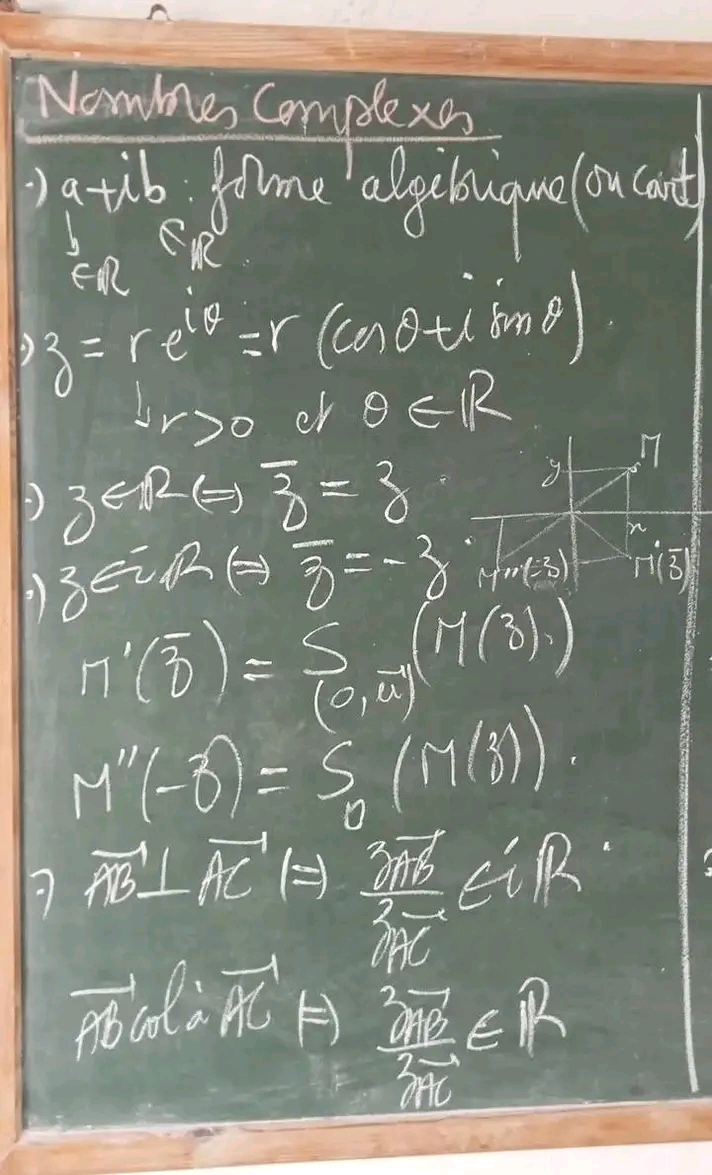 Nombres Complexes
·) a+ib : forme algébrique (ou cart)
↳ ∈ℝ ∈ℝ
·) z = re^{iθ} = r (cosθ + i sinθ)
↳ r>0 et θ ∈ ℝ
·) z∈ℝ ⟺ z̄ = z
·) z∈iℝ ⟺ z̄ = -z
y M
x
M''(-z) M'(z̄)
M'(z̄) = S_{(O,u⃗)} (M(z))
M''(-z) = S_O (M(z)).
·) AB⃗ ⊥ AC⃗ ⟺ z_{AB⃗}/z_{AC⃗} ∈ iℝ
AB⃗ col à AC⃗ ⟺ z_{AB⃗}/z_{AC⃗} ∈ ℝ